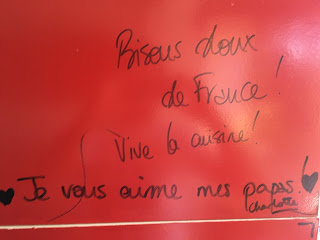 Bisous doux
de France!
Vive la cuisine!
Je vous aime mes papas!
Charlotte